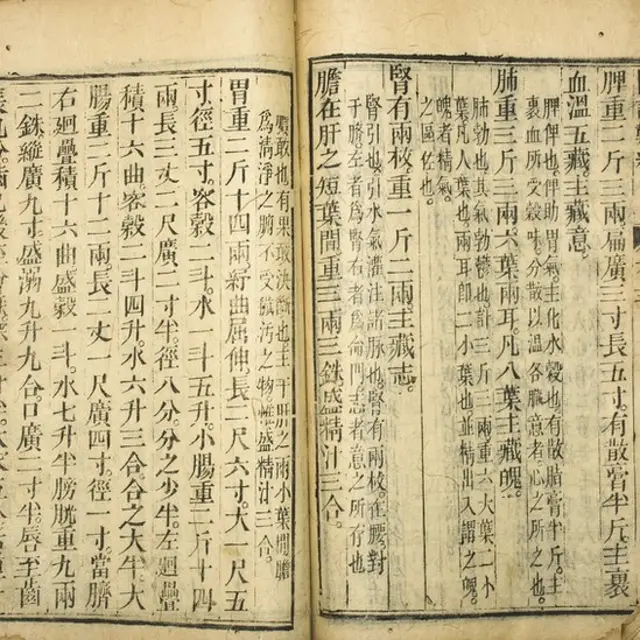 脾重二斤三兩。扁廣三寸長五寸。有散膏半斤。主裹
血溫五藏。主藏意。
脾俾也。俾助胃氣。主化水穀也。有散脂膏半斤。主
裹血所受穀味。分散以溫各臟意者。心之所之也。
肺重三斤三兩。六葉兩耳。凡八葉主藏魄。
肺勃也。其氣勃鬱也計三斤三兩重六大葉二小
葉凡人葉也。二耳卽二小葉也並精出入謂之魄。
魄者精氣。
之區佐也。
腎有兩枚。重一斤二兩。主藏志。
腎引也。引水氣灌注諸脉也。腎有兩枚。在腰對
于臍。左者為腎右者為命門志者意之所存也
膽在肝之短葉間重三兩三銖盛精汁三合。
膽敢也。有果敢決斷也主于肝之兩小葉間膽
為清淨之腑不受穢汚之物。惟盛精汁三合。
胃重二斤十四兩紆曲屈伸。長二尺六寸。大一尺五
寸。徑五寸。容穀二斗。水一斗五升。小腸重二斤十四
兩長三丈二尺廣二寸半。徑八分分之少半。左廻疊
積十六曲。容穀二斗四升。水六升三合。合之大半大
腸重二斤十二兩長二丈一尺廣四寸。徑一寸。當臍
右廻疊積十六曲盛穀一斗。水七升半膀胱重九兩
二銖縱廣九寸。盛溺九升九合。口廣二寸半。唇至齒
長九分。